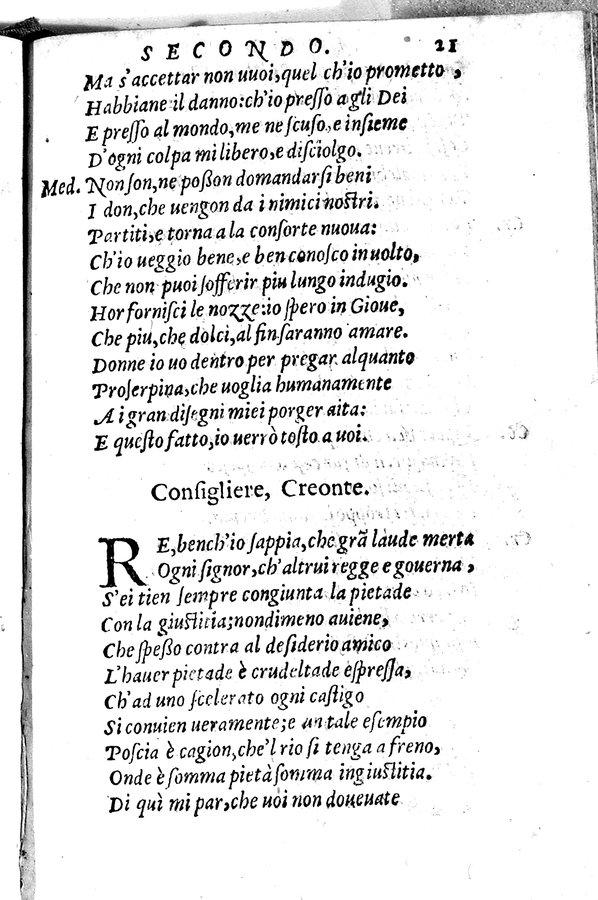 SECONDO. 21
Ma s'accettar non uuoi, quel ch'io prometto,
Habbiane il danno: ch'io presso a gli Dei
E presso al mondo, me ne scuso, e insieme
D'ogni colpa mi libero, e disciolgo.
Med. Non son, ne posson domandarsi beni
I don, che uengon da i nimici nostri.
Partiti, e torna a la consorte nuoua:
Ch'io ueggio bene, e ben conosco in uolto,
Che non puoi sofferir piu lungo indugio.
Hor fornisci le nozze: io spero in Gioue,
Che piu, che dolci, al fin saranno amare.
Donne io uo dentro per pregar alquanto
Proserpina, che uoglia humanamente
A i gran disegni miei porger aita:
E questo fatto, io uerrò tosto a uoi.
Consigliere, Creonte.
RE, bench'io sappia, che grā laude merta
Ogni signor, ch'altrui regge e gouerna,
S'ei tien sempre congiunta la pietade
Con la giustitia; nondimeno auiene,
Che spesso contra al desiderio amico
L'hauer pietade è crudeltade espressa,
Ch'ad uno scelerato ogni castigo
Si conuien ueramente; e un tale esempio
Poscia è cagion, che'l rio si tenga a freno,
Onde è somma pietà somma ingiustitia.
Di quì mi par, che uoi non doueuate